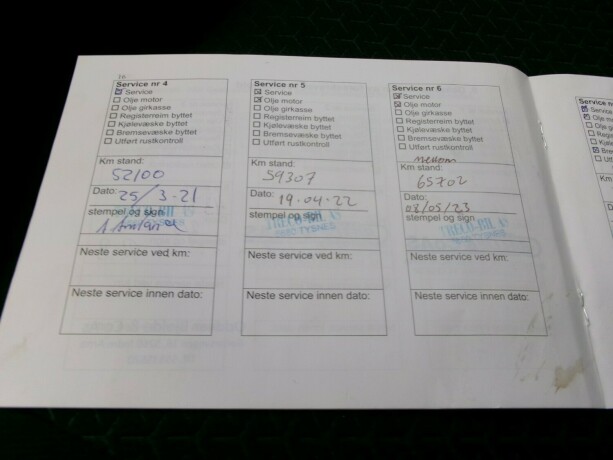 16
Service nr 4
Service
Olje motor
Olje girkasse
Registerreim byttet
Kjølevæske byttet
Bremsevæske byttet
Utført rustkontroll
Km stand:
52100
Dato: 25/3-21
stempel og sign
Neste service ved km:
Neste service innen dato:
Service nr 5
Service
Olje motor
Olje girkasse
Registerreim byttet
Kjølevæske byttet
Bremsevæske byttet
Utført rustkontroll
Km stand:
59307
Dato: 19.04-22
stempel og sign
TRECO-BIL
Neste service ved km:
Neste service innen dato:
Service nr 6
Service
Olje motor
Olje girkasse
Registerreim byttet
Kjølevæske byttet
Bremsevæske byttet
Utført rustkontroll
Km stand:
65702
Dato:
08/05/23
stempel og sign
TRECO-BIL
Neste service ved km:
Neste service innen dato: